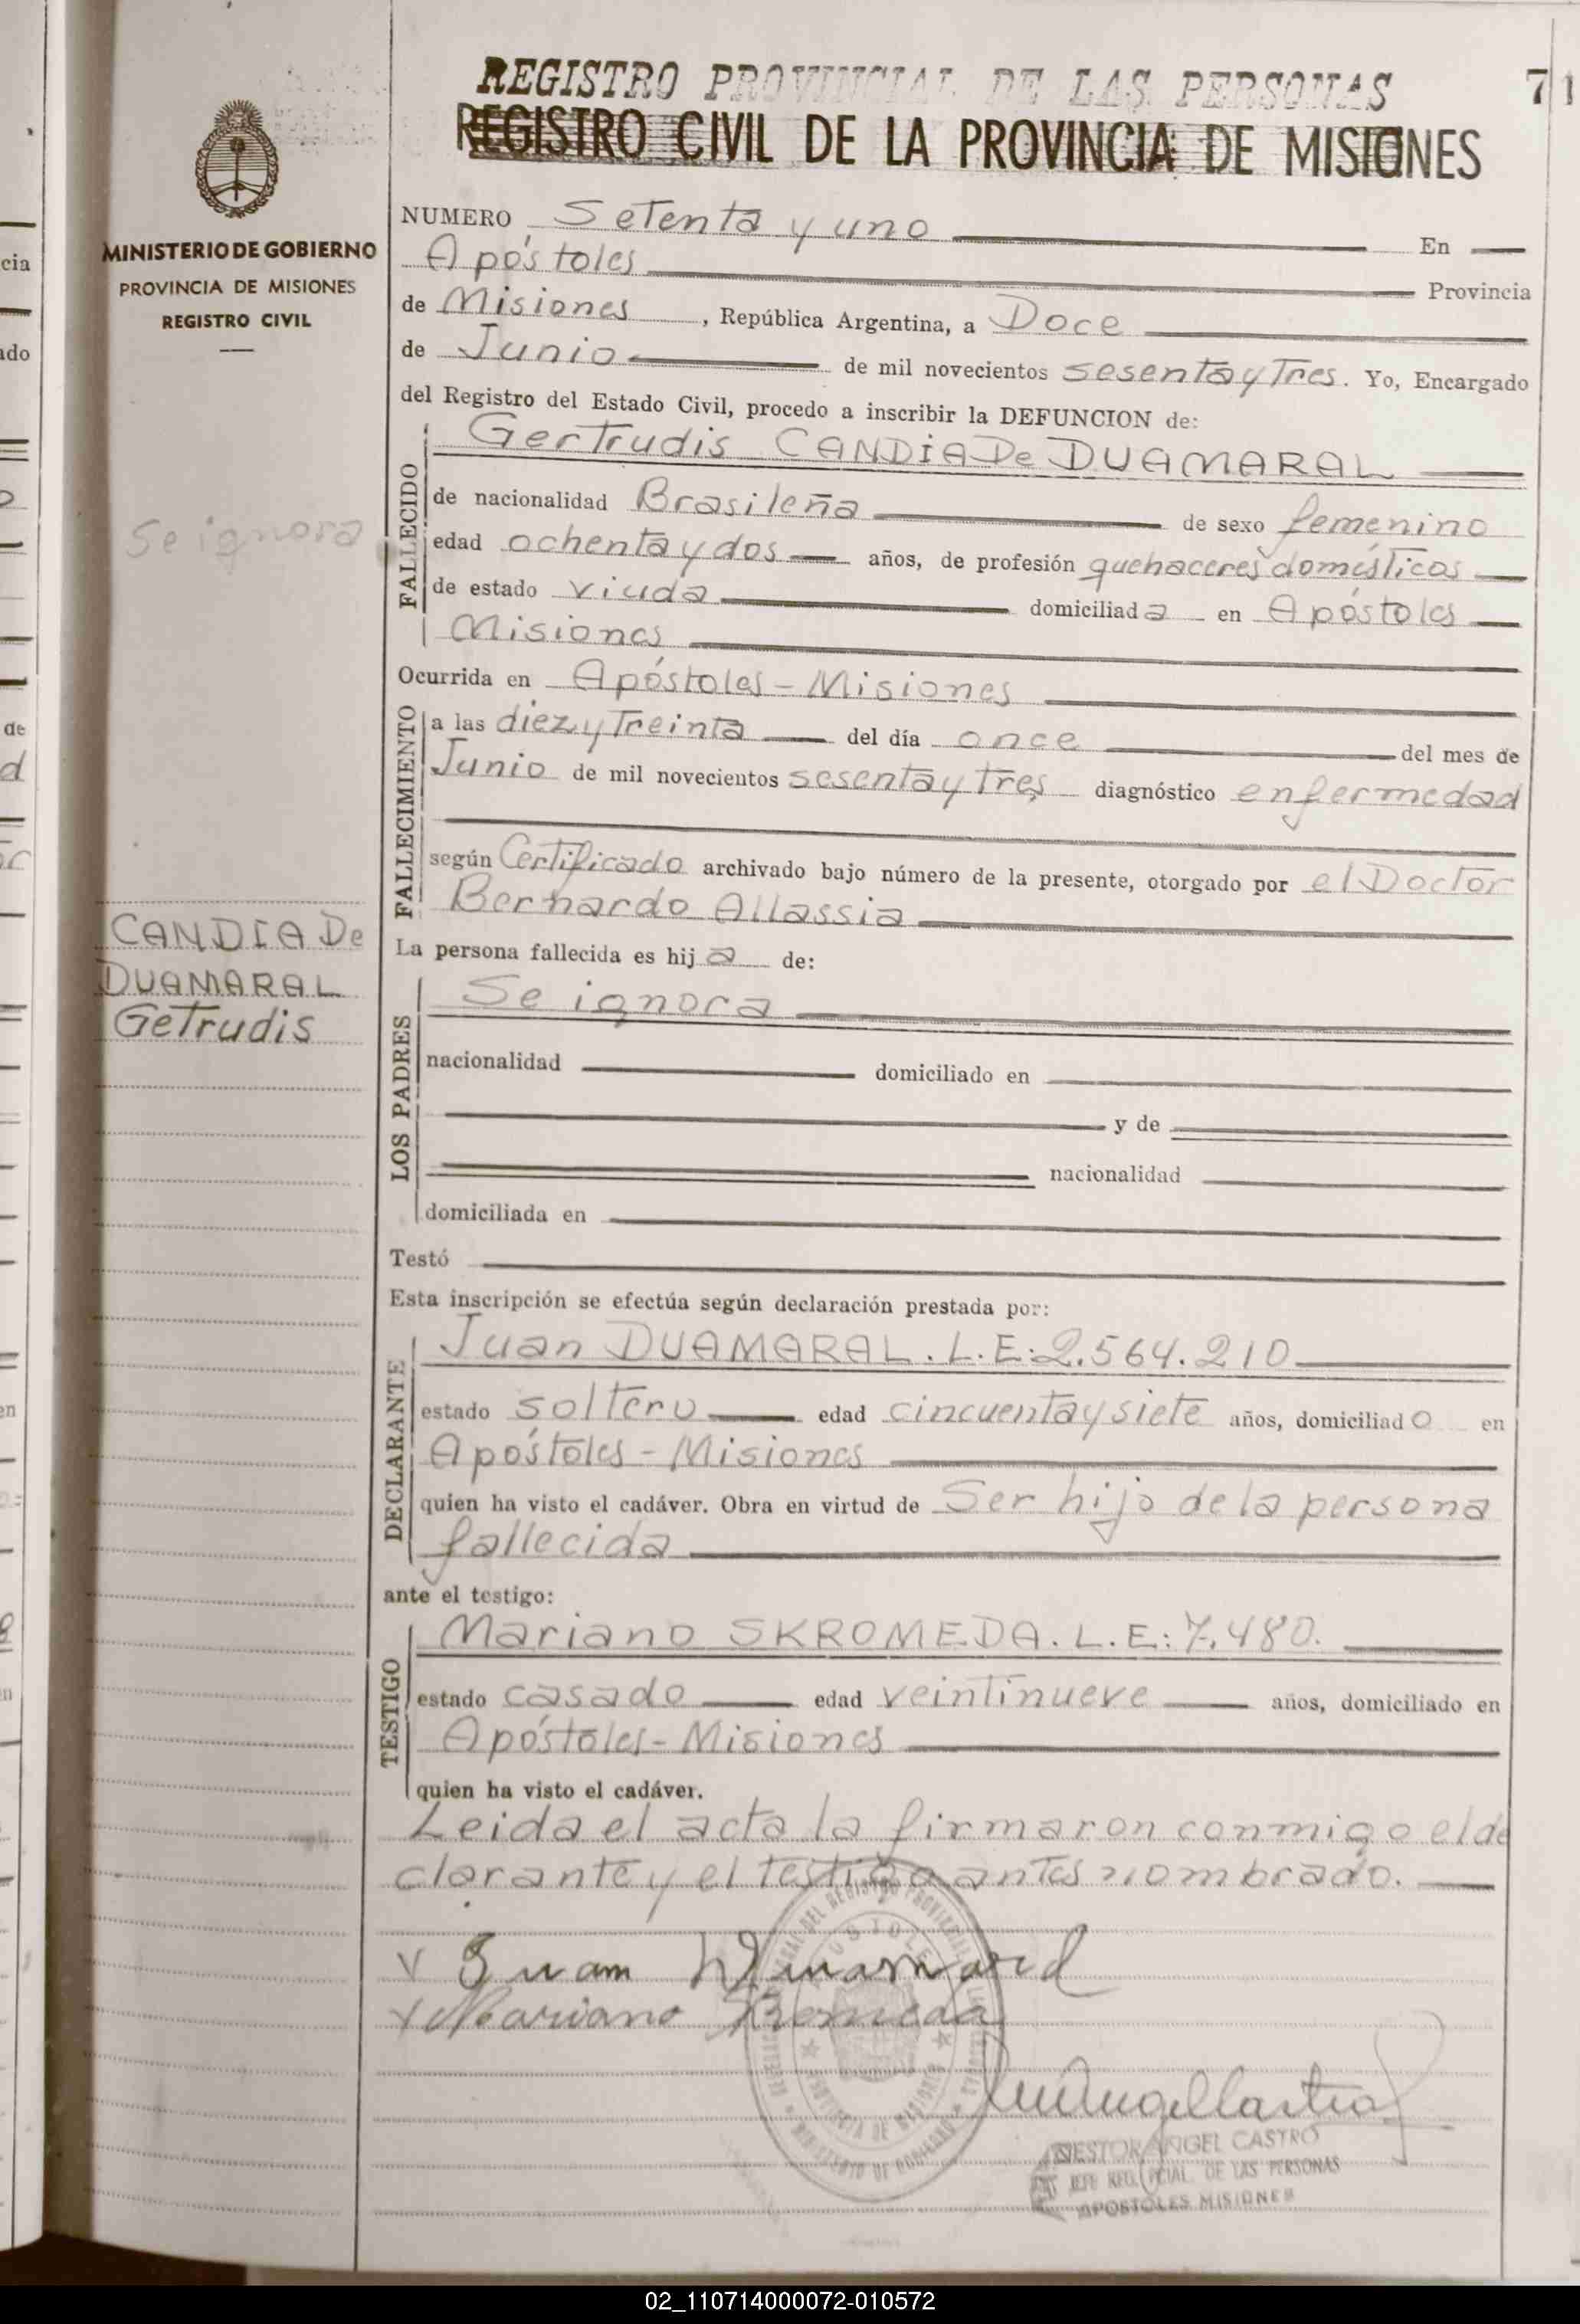 REGISTRO PROVINCIAL DE LAS PERSONAS
71
REGISTRO CIVIL DE LA PROVINCIA DE MISIONES
MINISTERIO DE GOBIERNO
PROVINCIA DE MISIONES
REGISTRO CIVIL
Se ignora
CANDIA De
DUAMARAL
Getrudis
NUMERO Setenta y uno En
Apóstoles Provincia
de Misiones, República Argentina, a Doce
de Junio de mil novecientos sesenta y Tres. Yo, Encargado
del Registro del Estado Civil, procedo a inscribir la DEFUNCION de:
FALLECIDO
Gertrudis CANDIA De DUAMARAL
de nacionalidad Brasileña de sexo femenino
edad ochenta y dos años, de profesión quehaceres domésticos
de estado viuda domiciliada en Apóstoles
Misiones
Ocurrida en Apóstoles - Misiones
FALLECIMIENTO
a las diez y Treinta del día once del mes de
Junio de mil novecientos sesenta y Tres diagnóstico enfermedad
según Certificado archivado bajo número de la presente, otorgado por el Doctor
Bernardo Allassia
La persona fallecida es hija de:
LOS PADRES
Se ignora
nacionalidad domiciliado en
y de
nacionalidad
domiciliada en
Testó
Esta inscripción se efectúa según declaración prestada por:
DECLARANTE
Juan DUAMARAL. L.E: 2.564.210
estado soltero edad cincuenta y siete años, domiciliado en
Apóstoles - Misiones
quien ha visto el cadáver. Obra en virtud de Ser hijo de la persona
fallecida
ante el testigo:
TESTIGO
Mariano SKROMEDA. L.E: 7.480.
estado casado edad veintinueve años, domiciliado en
Apóstoles - Misiones
quien ha visto el cadáver.
Leida el acta la firmaron conmigo el de
clarante y el testigo antes nombrado.
Juan
Mariano
NESTOR ANGEL CASTRO
JEFE REG. PCIAL. DE LAS PERSONAS
APOSTOLES MISIONES
02_110714000072-010572